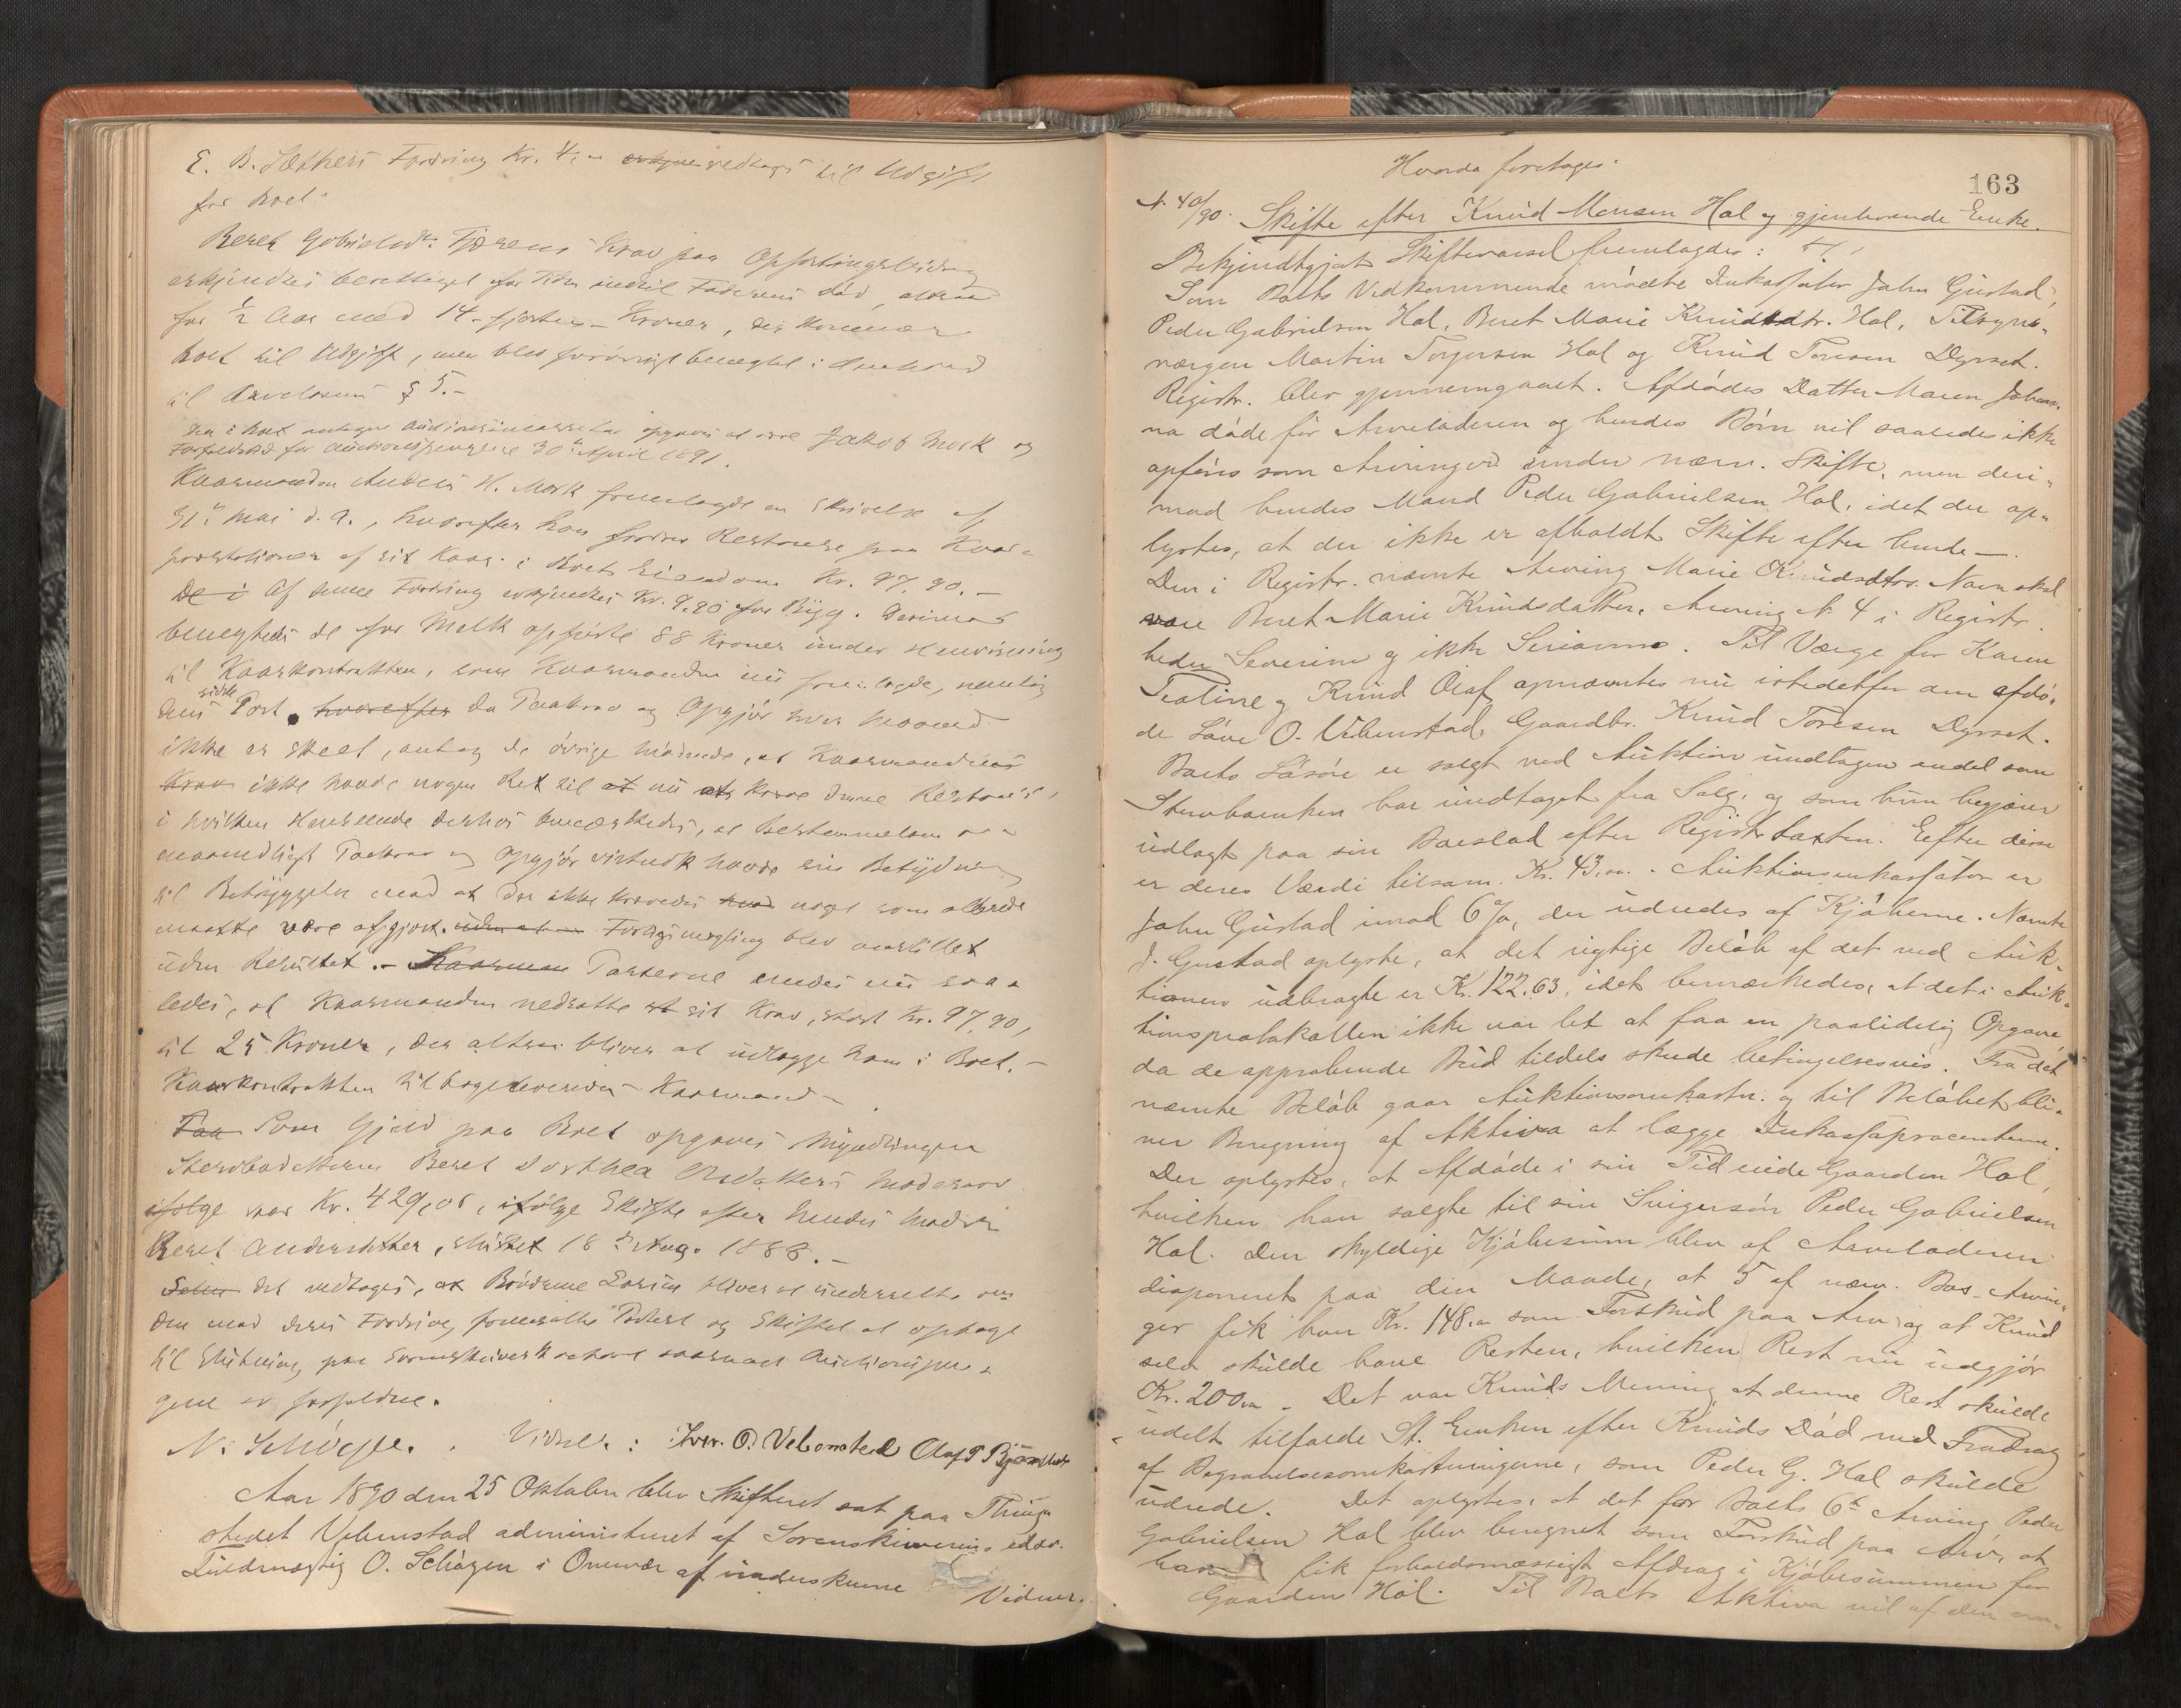 E. B. Sæthers Fordring Kr. 4,- vedtages til Udgift
for Boet.
Beret Gabrielsdr. Fjærens Krav paa Opfostringsbidrag
erkjendtes berettiget for Tiden indtil Faderens död, altsaa
for 1/2 Aar med 14 - fjorten - Kroner, der kommer
Boet til Udgift, men blev forövrigt benegtet i Henhold
til Arveloven § 5.-
opgaves at være Jakob Mork og
Forfaldstid for Auctionspengene 30te April 1891.
Kaarmanden Anders H. Mork fremlagde en Skrivelse af
31te Mai d. A., hvorefter han fordrer Restance paa Kaar-
præstationer af sit Kaar i Boets Eiendom Kr. 97.90.-
De i Af denne Fordring erkjendtes Kr. 9.90 for Byg. Derimod
benegtedes de for Melk opförte 88 Kroner under Henvisning
til Kaarkontrakten, som Kaarmanden nu fremlagde, nemlig
dens sidste Post, hvorefter da Paakrav og Opgjör hver Maaned
ikke er skeet, antog de övrige mödende, at Kaarmanden
Krav ikke havde nogen Ret til at nu at kræve denne Restance,
i hvilken Henseende derhos bemærkedes, at Bestemmelsen om
maanedligt Paakrav og Opgjör havde sin Betydning
til Betryggelse mod at der ikke krævedes noget som allerede
maatte være afgjort. Forligsmægling blev anstillet
uden Resultat.- Kaarman Parterne enedes nu saa-
ledes, at Kaarmanden nedsatte sit Krav, stort Kr. 97,90,
til 25 Kroner, der altsaa bliver at udlægge ham i Boet.-
Kaarkontrakten tilbageleveredes Kaarmanden.
Som Gjæld paa Boet opgaves Myndlingen
Beret Dorthea Modersarv
ifölge stor Kr. 429,06, ifölge Skifte efter hendes Moder
Beret Andersdatter, sluttet 18de Aug. 1888.-
det vedtages, at Brödrene bliver at underrette om
den mod deres Fordring fremsatte Protest og Skiftet at optage
til Slutning paa Sorenskriverkontoret saasnart Auctionspen-
gene er forfaldne.
N. Schögen. Vidner: Iver O. Vebenstad Olaf T Bjørnstad
Aar 1890 den 25 Oktober blev Skifteret sat paa Thing-
stedet Vebenstad administreret af Sorenskriverens edsv.
Fuldmægtig O. Schögen i Overvær af underskrevne Vidner.
Hvorda foretages
163
N. 40/90. Skifte efter Knud Monsen Hol og gjenlevende Enke.
Bekjendtgjort Skiftevarsel fremlagdes:
Som Boets Vedkommende mödte Inkassator John Gustad,
Peder Gabrielsen Hol, Beret Marie Knudsdtr. Hol, Tilsyns-
værgen Martin Torgersen Hol og Knud Toresen Dyrset.
Registr. blev gjennemgaaet. Afdödes Datter Maren Johan-
na döde för Arveladeren og hendes Börn vil saaledes ikke
opföres som Arvinger under nærv. Skifte, men deri-
mod hendes Mand Peder Gabrielsen Hol, idet der op-
lystes, at der ikke er afholdt Skifte efter hende -.
Den i Registr. nævnte Arving Marie Knudsdtrs. Navn skal
være Beret Marie Knudsdatter. Arving N. 4 i Registr.
heder Severine og ikke Serianna. Til Værge for Karen
Teoline og Knud Olaf opnævntes nu istedetfor den afdö-
de Lave O. Vebenstad, Gaardbr. Knud Toresen Dyrset.
Boets Lösöre er solgt ved Auktion undtagen endel som
Stervboenken har undtaget fra Salg, og som hun begjærer
udlagt paa sin Boeslod efter Registr.taxten. Efter disse
er deres Værdi tilsam. Kr. 43,00. Auktionsinkassator er
John Gustad imod 6%, der udredes af Kjöberne. Nævnte
J. Gustad oplyste, at det rigtige Belöb af det ved Auk-
tionen udbragte er Kr. 122.63, idet bemærkedes, at det i Auk-
tionsprotokollen ikke var let at faa en paalidelig Opgave,
da de approberede Bud tildels skede betingelsesvis. Fra det
nævnte Belöb gaar Auktionsomkostn. og til Belöbet bli-
ver Beregning af Aktiva at lægge Inkassaprocenterne.
Der oplystes, at Afdöde i sin Tid eiede Gaarden Hol,
hvilken han solgte til sin Svigersön Peder Gabrielsen
Hol. Den skyldige Kjöbesum blev af Arveladeren
disponeret paa den Maade, at 5 af nærv. Bos Arvin-
ger fik hver Kr. 148,00 som Forskud paa Arv og at Knud
selv skulde have Resten, hvilken Rest nu udgjör
Kr. 200,00. Det var Knuds Mening at denne Rest skulde
udelt tilfalde St. Enken efter Knuds Död med Fradrag
af Begravelsesomkostningerne, som Peder G. Hol skulde
udrede. Det oplystes, at det for Boets 6te Arving Peder
Gabrielsen Hol blev beregnet som Forskud paa Arv, at
han fik forholdsmæssigt Afdrag i Kjöbesummen for
Gaarden Hol. Til Boets Aktiva vil af den